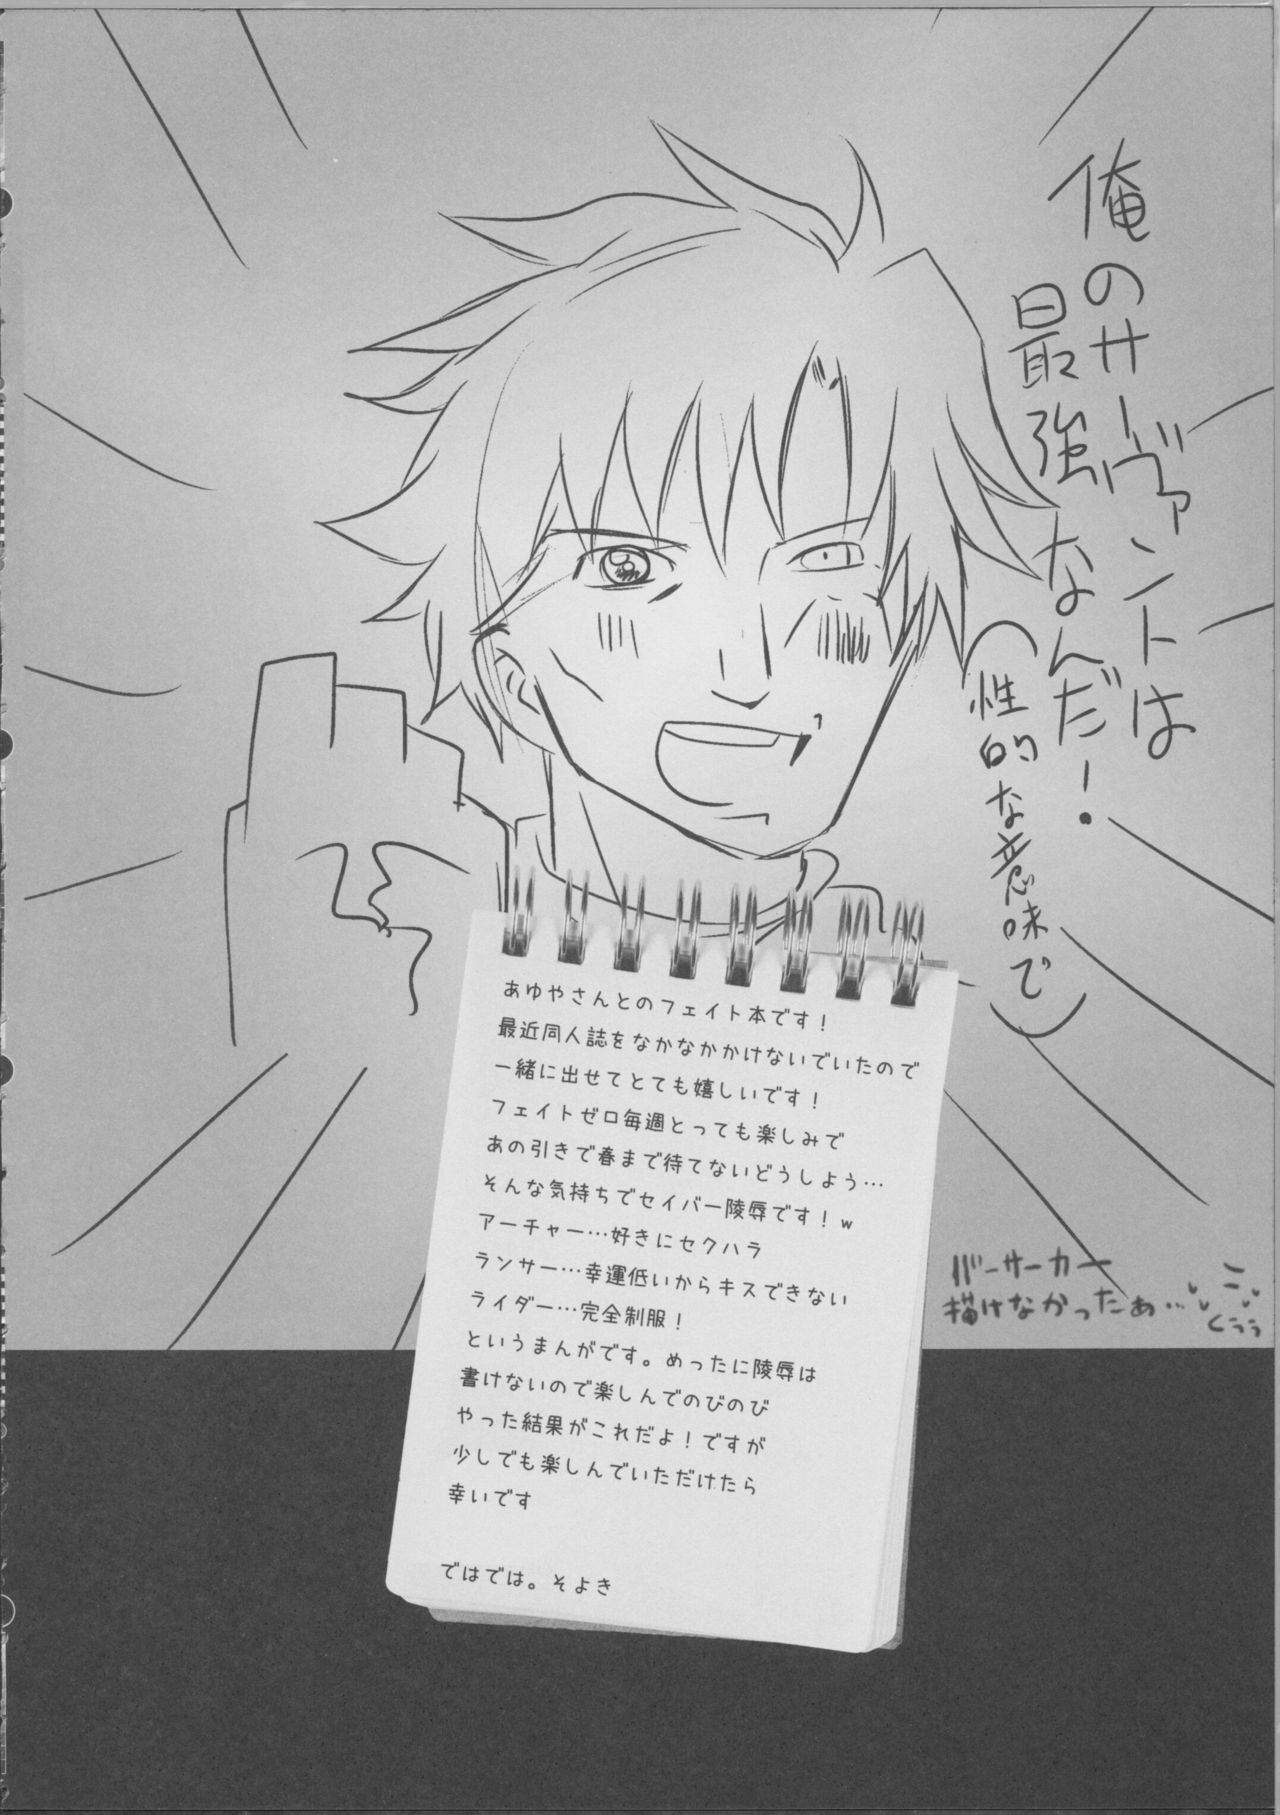 俺のサーヴァントは
最強なんだ！
（性的な意味で）
あゆやさんとのフェイト本です！
最近同人誌をなかなかかけないでいたので
一緒に出せてとても嬉しいです！
フェイトゼロ毎週とっても楽しみで
あの引きで春まで待てないどうしよう…
そんな気持ちでセイバー陵辱です！w
アーチャー…好きにセクハラ
ランサー…幸運低いからキスできない
ライダー…完全制服！
というまんがです。めったに陵辱は
書けないので楽しんでのびのび
やった結果がこれだよ！ですが
少しでも楽しんでいただけたら
幸いです
ではでは。そよき
バーサーカー
描けなかったぁ…
くぅぅ